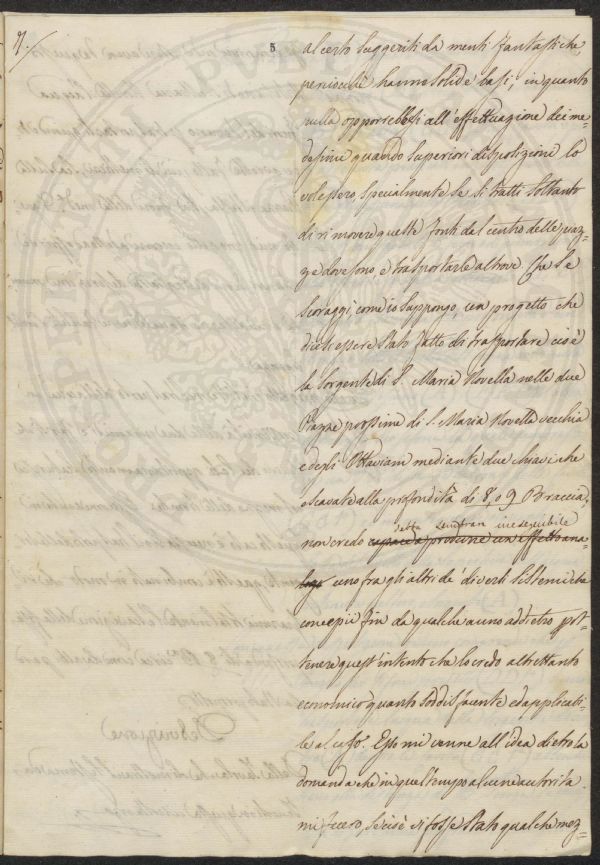 7./
5
al certo suggeriti da menti fantastiche
perciocchè hanno solide basi, in quanto
nulla opporrebbesi all'effettuazione dei me=
desimi quando superiori disposizione lo
volessero, specialmente se si tratti soltanto
di rimovere queste fonti dal centro delle piaz=
ze dove sono, e trasportarle altrove. Che se
scoraggi, come io suppongo, un progetto che
dicesi essere stato fatto di trasportare cioè
la sorgente di S. Maria Novella nelle due
Piazze prossime di S. Maria Novella vecchia
e degli Ottaviani mediante due chiavi che
escavate alla profondità di 8, o 9 Braccia,
sembran ineseguibile
non credo capace a produrre un effetto ana=
logo uno fra gli altri de' diversi sistemi che
concepii fin da qualche anno addietro per ot=
tenere quest'intento che lo credo altrettanto
economico quanto soddisfacente ed applicabi=
le al caso. Esso mi venne all'idea dietro la
domanda che in quel tempo alcune autorità
mi fecero, se cioè vi fosse stato qualche mez=
Descrizione